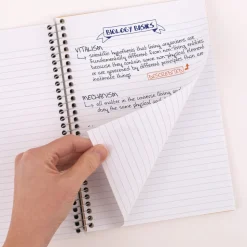 BIOLOGY BASICS
VITALISM
→ scientific hypothesis that living organisms are
fundamentally different from non-living entities
because they contain some non-physical element
or are governed by different principles than are
inanimate things.
MECHANISM
→ all matter in the universe living
obey the same physical and